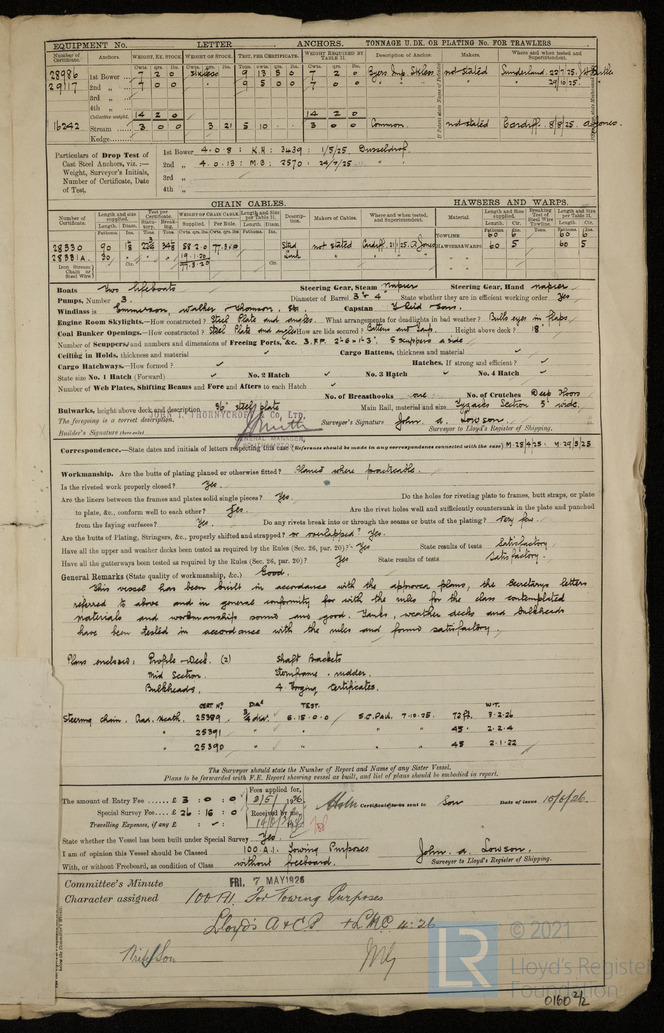 EQUIPMENT No. LETTER ANCHORS. TONNAGE U. DK. OR PLATING No. FOR TRAWLERS
Number of Certificate. Anchors. WEIGHT, EX. STOCK. WEIGHT OF STOCK. TEST, PER CERTIFICATE. WEIGHT REQUIRED BY TABLE 31. Description of Anchor. Makers. Where and when tested and Superintendent.
28986 1st Bower 7 2 0 9 13 5 0 7 2 0 not stated Sunderland
29117 2nd " 7 0 0 9 5 0 0 7 0 0
3rd "
4th "
Collective weight. 14 2 0 14 2 0
16242 Stream 3 0 0 3 21 5 10 3 0 0 Common. not stated Cardiff. 8/8/25. A. Jones.
Kedge
Particulars of Drop Test of Cast Steel Anchors, viz.:— Weight, Surveyor's Initials, Number of Certificate, Date of Test.
1st Bower 4.0.8 : K.H : 3439 : 1/5/25. Dusseldorf.
2nd " 4.0.13 : M.B : 2570 : 24/7/25. "
3rd "
4th "
CHAIN CABLES. HAWSERS AND WARPS.
Number of Certificate. Length and size supplied. Test per Certificate. WEIGHT OF CHAIN CABLE. Length and Size per Table 31. Description. Makers of Cables. Where and when tested, and Superintendent. Material. Length and Size supplied. Breaking Test of Steel Wire Towline. Length and Size per Table 31.
TOWLINE 60 6 60 6
28330 90 58.2.0 Stud not stated Cardiff A. Jones HAWSERS & WARPS 60 5 60 5
28331A. 30 19.1.20 Link
77.3.20
Iron Stream Chain or Steel Wire
Boats two lifeboats Steering Gear, Steam Napier Steering Gear, Hand Napier.
Pumps, Number 3. Diameter of Barrel 3" & 4" State whether they are in efficient working order Yes
Windlass is Emmerson, Walker Thomson Bros Capstan T. Reid & Sons.
Engine Room Skylights.—How constructed? Steel Plate and angles. What arrangements for deadlights in bad weather? Bulls eyes in flaps.
Coal Bunker Openings.—How constructed? Steel Plate and angles How are lids secured? Battens and Tarp. Height above deck? 18"
Number of Scuppers, and numbers and dimensions of Freeing Ports, &c. 3. F.P. 2'-6" x 1'-3". 5 scuppers a side
Ceiling in Holds, thickness and material Cargo Battens, thickness and material
Cargo Hatchways.—How formed? Hatches, If strong and efficient?
State size No. 1 Hatch (Forward) No. 2 Hatch No. 3 Hatch No. 4 Hatch
Number of Web Plates, Shifting Beams and Fore and Afters to each Hatch
No. of Breasthooks one. No. of Crutches Deep floors
Bulwarks, height above deck and description 36" steel plate Main Rail, material and size Tyzacks Section 5" wide.
The foregoing is a correct description. JOHN I. THORNYCROFT & Co. LTD.
Builder's Signature (here only) GENERAL MANAGER. Surveyor's Signature John. A. Lowson. Surveyor to Lloyd's Register of Shipping.
Correspondence.—State dates and initials of letters respecting this case (Reference should be made in any correspondence connected with the case) M. 28/4/25. M. 29/5/25
Workmanship. Are the butts of plating planed or otherwise fitted? Planed where practicable.
Is the riveted work properly closed? Yes.
Are the liners between the frames and plates solid single pieces? Yes. Do the holes for riveting plate to frames, butt straps, or plate
to plate, &c., conform well to each other? Yes. Are the rivet holes well and sufficiently countersunk in the plate and punched
from the faying surfaces? Yes. Do any rivets break into or through the seams or butts of the plating? very few.
Are the butts of Plating, Stringers, &c., properly shifted and strapped? or overlapped? Yes.
Have all the upper and weather decks been tested as required by the Rules (Sec. 26, par. 20)? Yes State results of tests Satisfactory
Have all the gutterways been tested as required by the Rules (Sec. 26, par. 20)? Yes State results of tests Satisfactory.
General Remarks (State quality of workmanship, &c.) Good.
This vessel has been built in accordance with the approved plans, the Secretarys letters
referred to above and in general conformity for with the rules for the class contemplated
materials and workmanship sound and good. Tanks, weather decks and bulkheads
have been tested in accordance with the rules and found satisfactory.
Plans enclosed: Profile & Deck. (2) Shaft Brackets
Mid Section. Sternframe & rudder.
Bulkheads. 4 Forging Certificates.
CERT. No. DIA. TEST. WT.
Steering chain. Rad. Heath. 25389 3/4 dia. 6.15.0.0 S.C.Pad. 7.10.25. 72 ft. 3.2.26
" 25391 " " " " 45. 2.2.4
" 25390 " " " " 45 2.1.22
The Surveyor should state the Number of Report and Name of any Sister Vessel.
Plans to be forwarded with F.E. Report showing vessel as built, and list of plans should be embodied in report.
The amount of Entry Fee £ 3 : 0 : 0 Fees applied for, 3/5/1926
Special Survey Fee £ 26 : 16 : 0 Received by me,
Travelling Expenses, if any £
Certificate to be sent to Son Date of issue 15/6/26.
State whether the Vessel has been built under Special Survey Yes.
I am of opinion this Vessel should be Classed 100 A.1. Towing Purposes
With, or without Freeboard, as condition of Class without freeboard. John. A. Lowson. Surveyor to Lloyd's Register of Shipping.
Committee's Minute FRI. 7 MAY 1926
Character assigned 100A1. For Towing Purposes
Lloyd's A & C P + LMC 4.26
© 2021
LR Lloyd's Register Foundation
0160 2/2